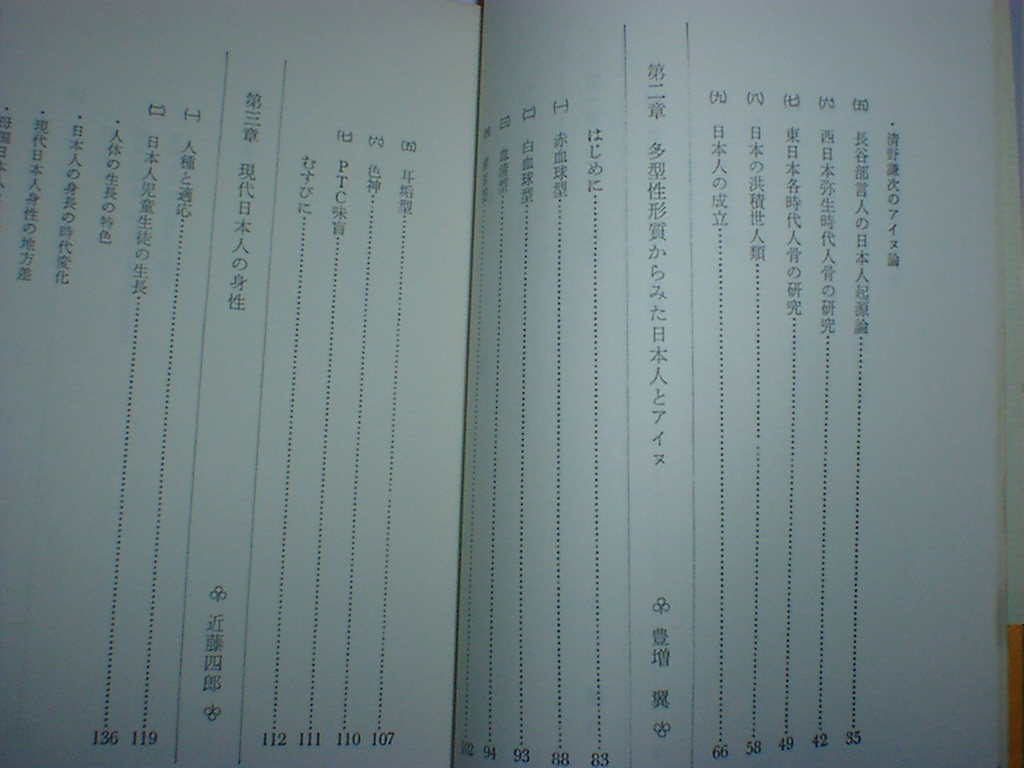 ・清野謙次のアイヌ論
㈤ 長谷部言人の日本人起源論 35
㈥ 西日本弥生時代人骨の研究 42
㈦ 東日本各時代人骨の研究 49
㈧ 日本の洪積世人類 58
㈨ 日本人の成立 66
第二章 多型性形質からみた日本人とアイヌ 豊増 翼
はじめに 83
㈠ 赤血球型 88
㈡ 白血球型 93
㈢ 血清型 94
102
㈤ 耳垢型 107
㈥ 色神 110
㈦ PTC味盲 111
むすびに 112
第三章 現代日本人の身性 近藤四郎
㈠ 人種と適応 119
㈡ 日本人児童生徒の生長 136
・人体の生長の特色
・日本人の身長の時代変化
・現代日本人身性の地方差